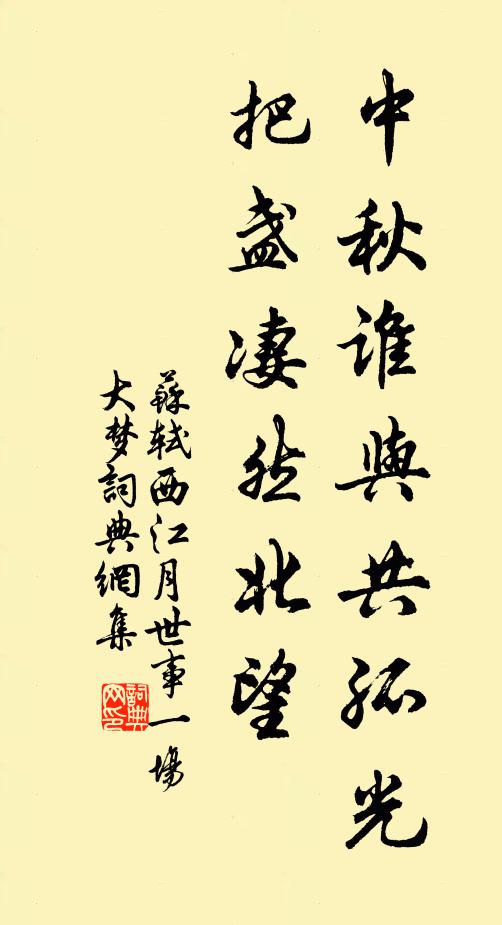 中秋誰與共孤光
把盞凄然北望
蘇軾西江月世事一場
大梦詞典網集
詞典网印